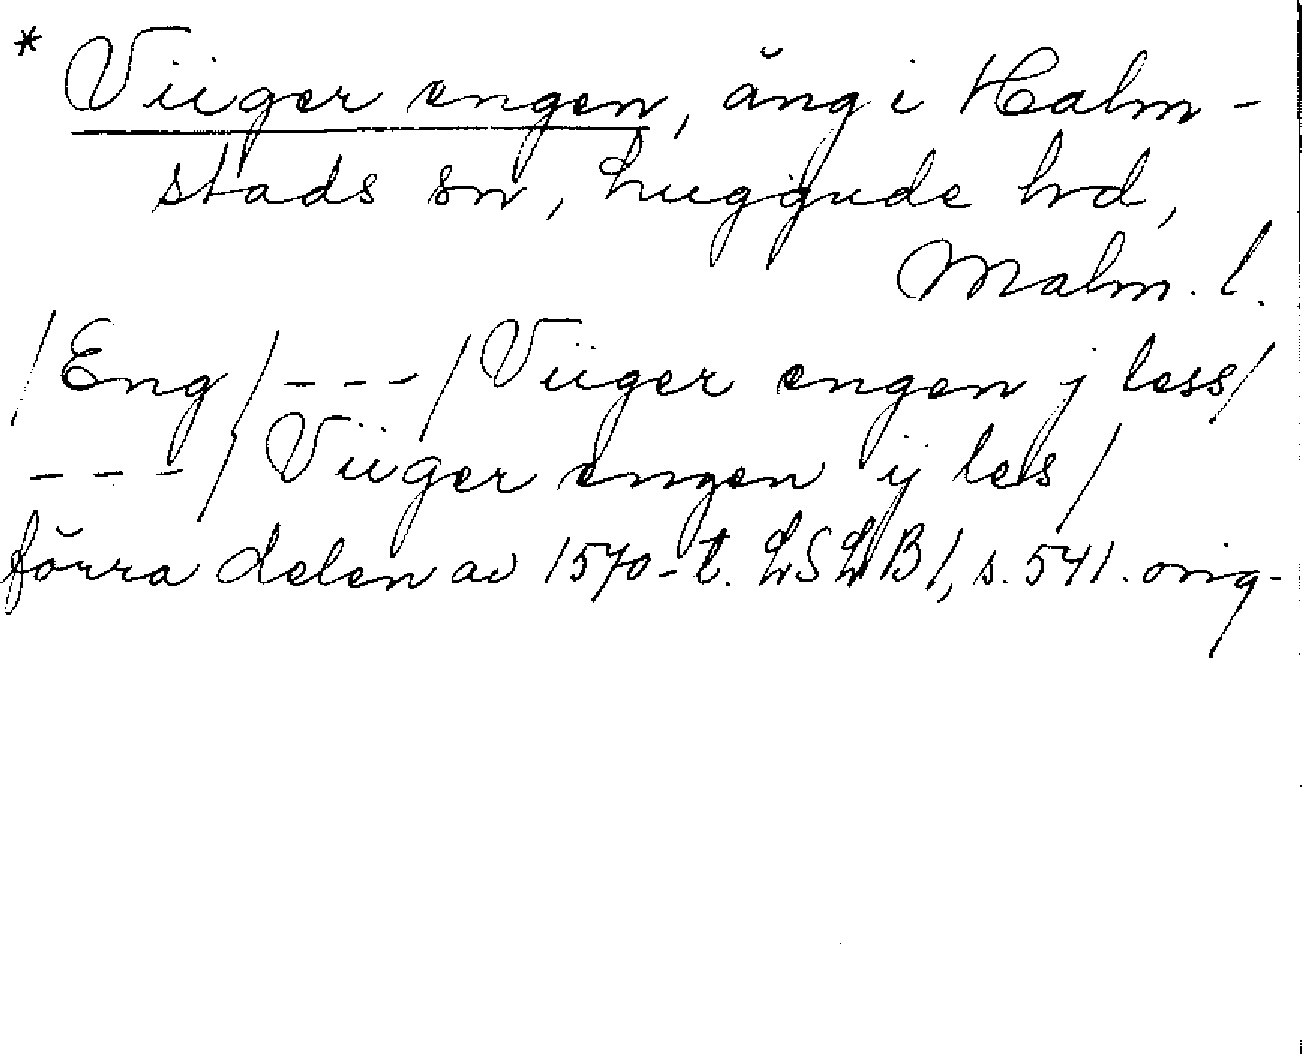 * Viiger engen, äng i Halm-
stads sn, Luggude hd,
Malm. l.
/Eng/---/Viiger engen j less/
---/Viiger engen ij les/
förra delen av 1570-t. LSLB 1, s. 541. orig.